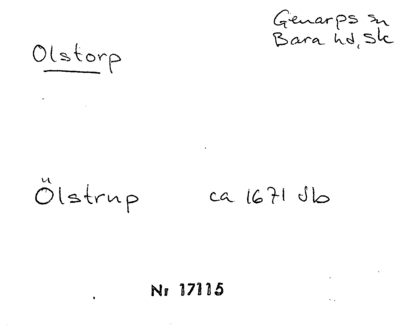 Genarps sn
Bara hd, Sk
Olstorp
Ölstrup ca 1671 Jb
Nr 17115